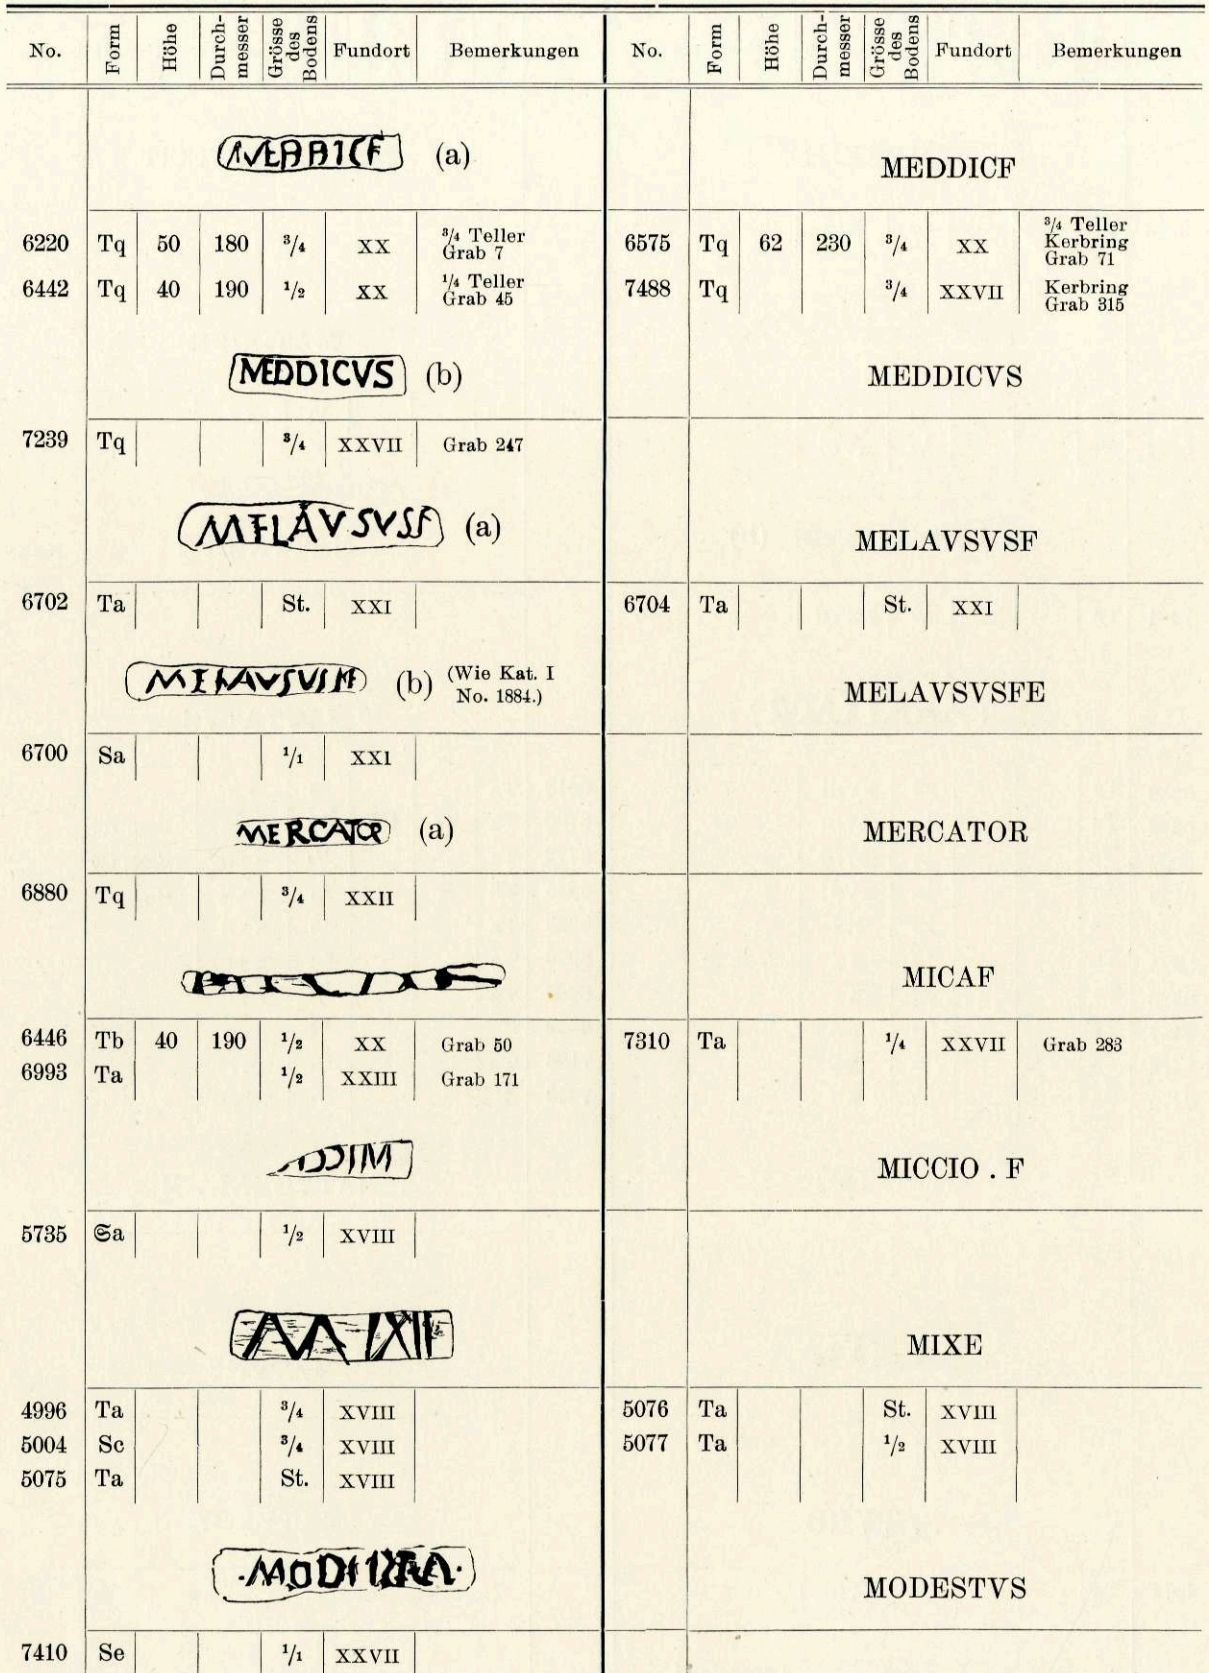 No. Form Höhe Durch-messer Grösse des Bodens Fundort Bemerkungen No. Form Höhe Durch-messer Grösse des Bodens Fundort Bemerkungen
(a) MEDDICF
6220 Tq 50 180 3/4 XX 3/4 Teller Grab 7 6575 Tq 62 230 3/4 XX 3/4 Teller Kerbring Grab 71
6442 Tq 40 190 1/2 XX 1/4 Teller Grab 45 7488 Tq 3/4 XXVII Kerbring Grab 315
MEDDICVS (b) MEDDICVS
7239 Tq 3/4 XXVII Grab 247
MELAVSVSF (a) MELAVSVSF
6702 Ta St. XXI 6704 Ta St. XXI
(b) (Wie Kat. I No. 1884.) MELAVSVSFE
6700 Sa 1/1 XXI
MERCATOR (a) MERCATOR
6880 Tq 3/4 XXII
MICAF
6446 Tb 40 190 1/2 XX Grab 50 7310 Ta 1/4 XXVII Grab 283
6993 Ta 1/2 XXIII Grab 171
MICCIO . F
5735 Sa 1/2 XVIII
MIXE
4996 Ta 3/4 XVIII 5076 Ta St. XVIII
5004 Sc 3/4 XVIII 5077 Ta 1/2 XVIII
5075 Ta St. XVIII
MODESTVS
7410 Se 1/1 XXVII